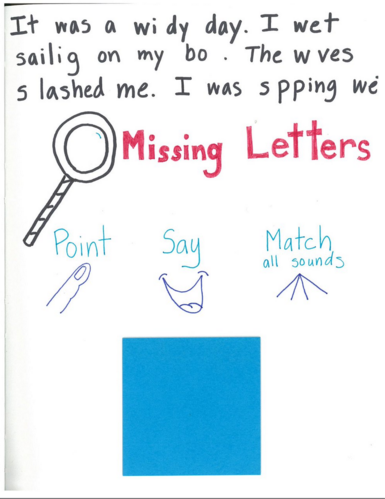 It was a widy day. I wet
sailig on my bo . The wves
slashed me. I was spping we
Missing Letters
Point
Say
Match
all sounds